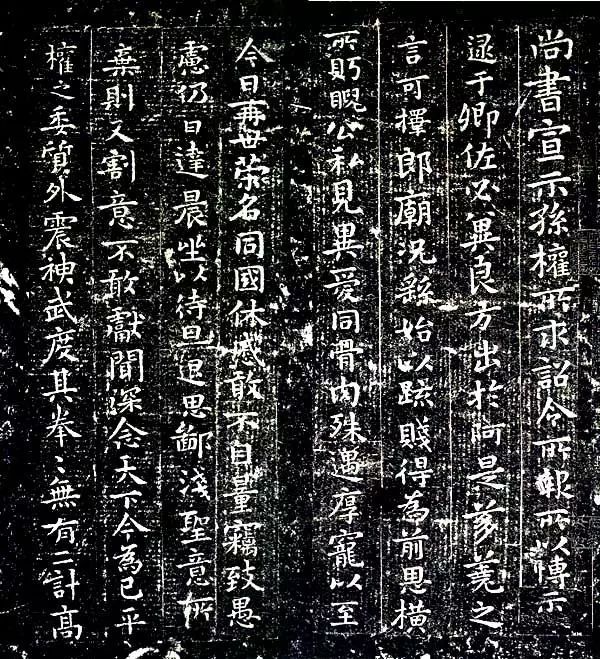 尚書宣示孫權所求詔令所報所以博示
逮于卿佐必冀良方出於阿是芻蕘之
言可擇郎廟況繇始以踈賤得為前恩橫
所眄睨公私見異愛同骨肉殊遇厚寵以至
今日再世榮名同國休慼敢不自量竊致愚
慮仍日達晨坐以待旦退思鄙淺聖意所
棄則又割意不敢獻聞深念天下今為已平
權之委質外震神武度其拳〻無有二計高